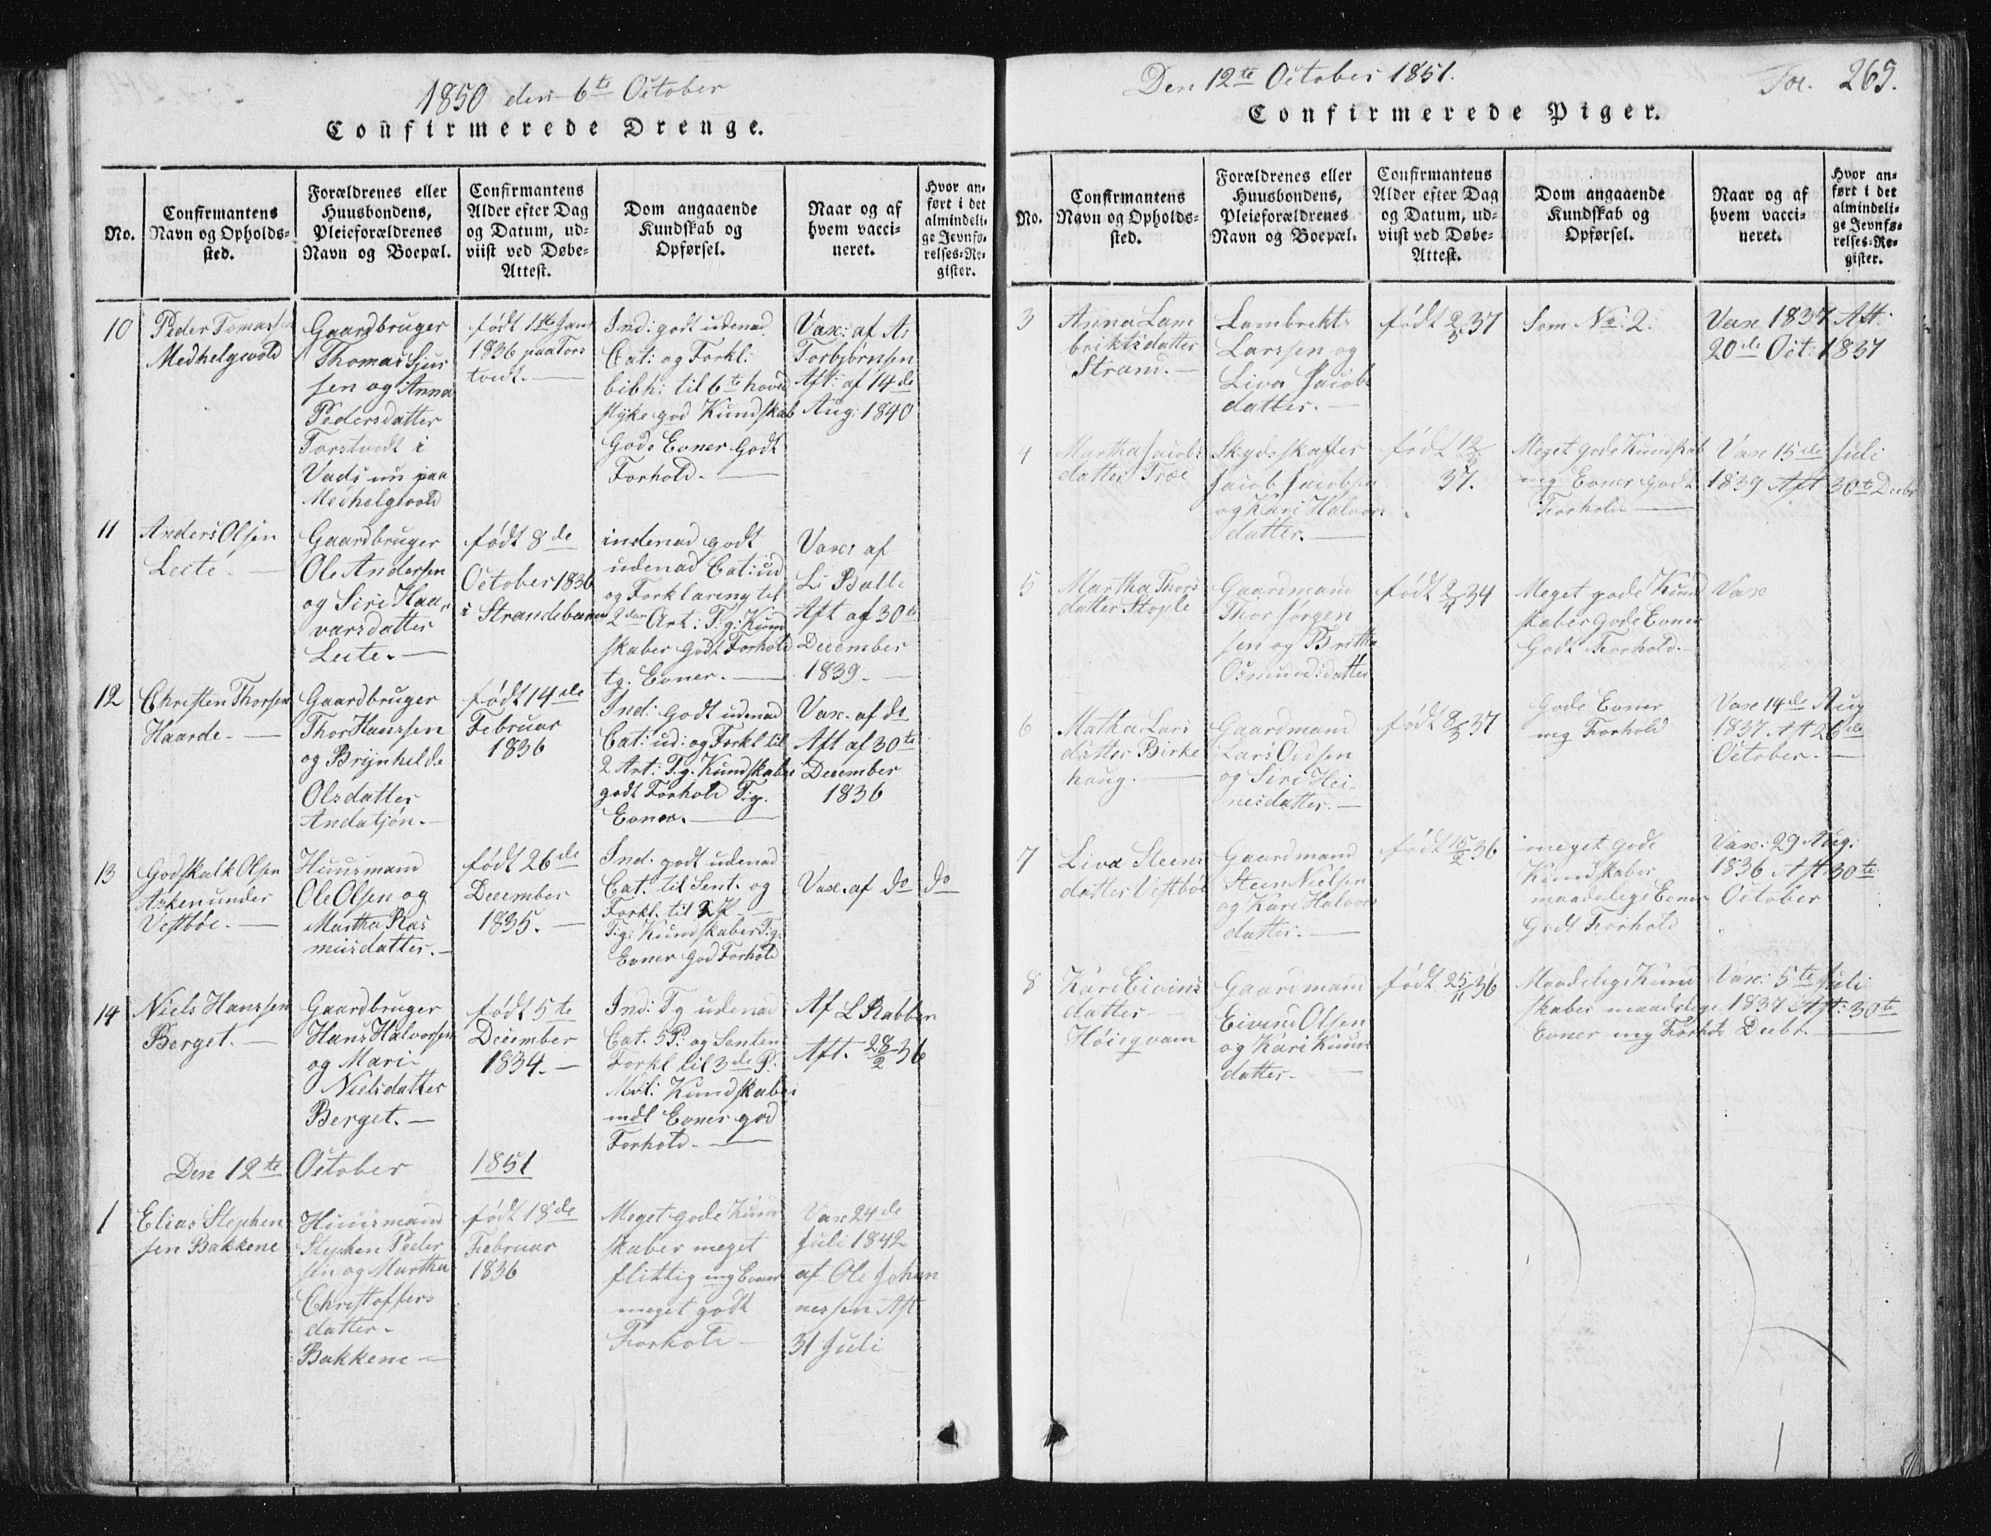 1850 den 6te October
Confirmerede Drenge.
No.
Confirmantens
Navn og Opholds-
sted.
Forældrenes eller
Huusbondens,
Pleieforældrenes
Navn og Boepæl.
Confirmantens
Alder efter Dag
og Datum, ud-
viist ved Døbe-
Attest.
Dom angaaende
Kundskab og
Opførsel.
Naar og af
hvem vacci-
neret.
Hvor an-
ført i det
almindeli-
ge Jevnfø-
relses-Re-
gister.
10
Peder Tomassen
Medhelgvold
Gaardbruger
Thomas
sen og Anna
Pedersdatter
Torstvedt i
Vads nu paa
Medhelgvold
født 1te Janr
1836 paa Tors
tvedt. —
Ind: godt udenad
Cat: og Forkl:
bibh: til 6te hoved
styke god Kundskab
Gode Evner Godt
Forhold. —
Vax: af As
Torbjørnsen
Aft: af 14de
Aug: 1840
11
Anders Olsen
Leite. —
Gaardbruger
Ole Andersen
og Siri Haa-
varsdatter
Leite. —
født 8de
October 1836
i Strandebarm
indenad godt
udenad Cat: ud
og Forklareng til
2den Art: T.g: Kund
skaber Godt Forhold
tg. Evner. —
Vax: af
L: Balle
Aft af 30te
December
1839. —
12
Christen Thorsen
Haarde. —
Gaardbruger
Thor Hanssen
og Brynhilde
Olsdatter
Andatjøn. —
født 14de
Februar
1836
Ind: godt udenad
Cat: ud: og Forkl til
2 Art: T.g. Kundskaber
godt Forhold T.g.
Evner. —
Vax. af do
Aft af 30te
December
1836
13
Godskalk Olsen
Asken under
Vestbøe. —
Huusmand
Ole Olsen og
Martha Ras
musdatter. —
født 26de
December
1835. —
Ind. godt udenad
Cat. til Sent. og
Forkl. til
T.g: Kundskaber T.g:
Evner God Forhold
Vax. af do do
14
Niels Hanssen
Berget. —
Gaardbruger
Hans Halvorsen
og Mari
Nielsdatter
Berget. —
født 5te
December
1834. —
Ind: Tg udenad
Cat: 5 P: og Senten
Forkl til 3de P:
Mdl: Kundskaber
mdl Evner god
Forhold. —
Af L Rabben
Aft. 28/2 36
Den 12te October 1851
1
Elias Stephen
sen Bakkene
Huusmand
Stephen Peder
sen og Martha
Christoffers
datter.
Bakkene —
født 18de
Februar
1836
Meget gode Kund
skaber meget
flittig mg Evner
meget godt
Forhold —
Vax 24de
Juli 1842
af Ole Johan
nessen Aft
31 Juli
Den 12te October 1851.
For. 265.
Confirmerede Piger.
No.
Confirmantens
Navn og Opholds-
sted.
Forældrenes eller
Huusbondens,
Pleieforældrenes
Navn og Boepæl.
Confirmantens
Alder efter Dag
og Datum, ud-
viist ved Døbe-
Attest.
Dom angaaende
Kundskab og
Opførsel.
Naar og af
hvem vacci-
neret.
Hvor an-
ført i det
almindeli-
ge Jevnfø-
relses-Re-
gister.
3
Anna Lam
briktsdatter
Strum. —
Lambrekts
Larssen og
Liva Jacobs
datter. —
født 37
Som No: 2.
Vax 1837 Aft:
20de Oct: 1837
4
Martha Jacobs
datter Træe
Skydsskaffer
Jacob Jacobsen
og Kari Halvors
datter. —
født
37.
Meget gode Kundskab
mg Evner godt
Forhold —
Vax 15de Juli
1839 Aft 30te Decbr
5
Martha Thors
datter Stople
Gaardmand
Thor Jørgen
sen og Britha
Osmundsdatter
født 34
Meget gode Kund
skaber Gode Evner
Godt Forhold. —
Vax
6
Matha Lars
datter Birke
haug. —
Gaardmand
Lars Oldsen
og Siri Hei-
nesdatter. —
født 37
Gode Evner
mg Forhold
Vax 14de Aug
1837 Aft 26de
October. —
7
Liva Steens
datter Vestbøe
Gaardmand
Steen Nielsen
og Kari Halvors
datter. —
født 15/2 36
meget gode
Kundskaber
maadelige Evner
Godt Forhold
Vax: 29 Aug:
1836 Aft: 30te
October
8
Kari Eivins
datter
Høieqvam
Gaardmand
Eivind Olsen
og Kari Knuds
datter. —
født 25/11 36
Maadelige Kund
skaber maadelige
Evner mg Forhold
Vax: 5te Juli
1837 Aft: 30te
Decbr. —